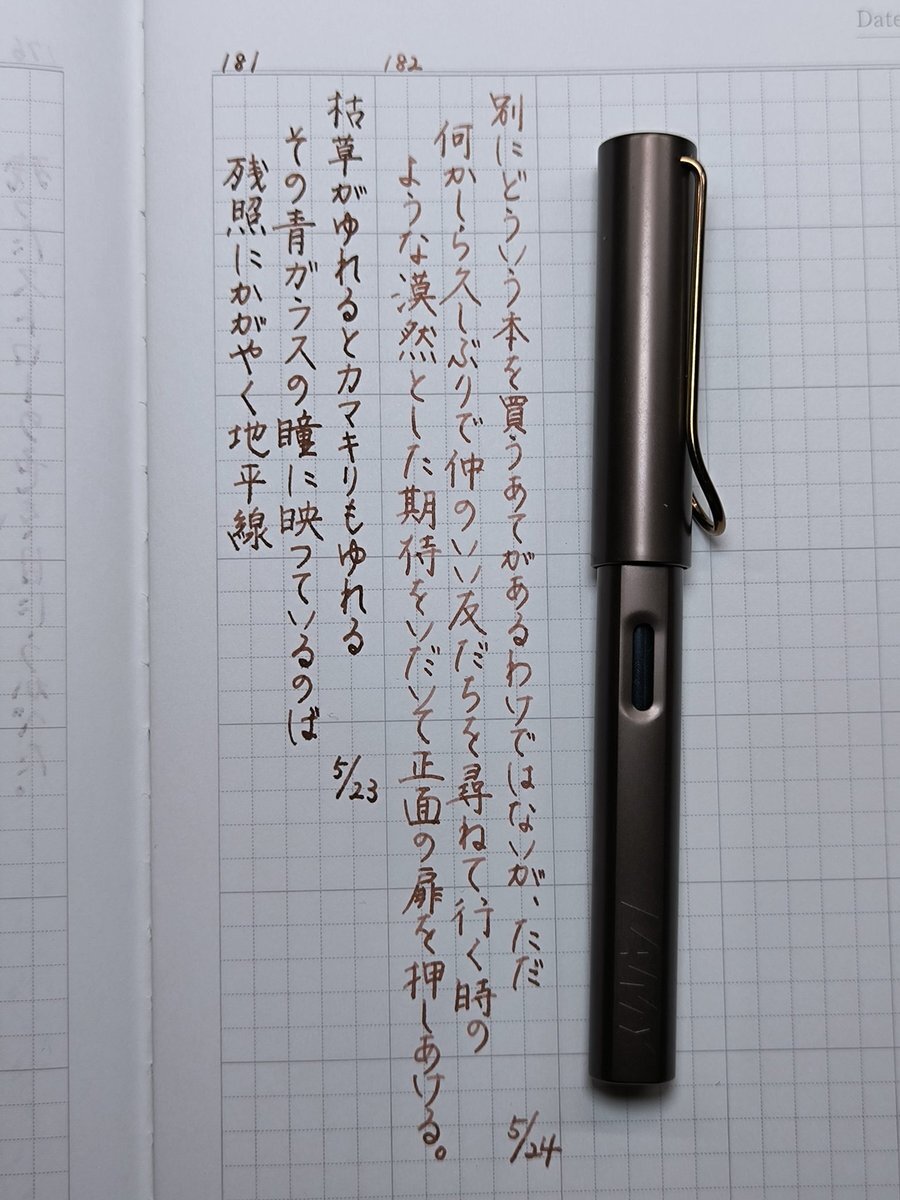 Date
181
枯草がゆれるとカマキリもゆれる
その青ガラスの瞳に映っているのば
残照にかがやく地平線
5/23
182
別にどういう本を買うあてがあるわけではないが、ただ
何かしら久しぶりで仲のいい友だちを尋ねて行く時の
ような漠然とした期待をいだいて正面の扉を押しあける。
5/24
LAMY
176